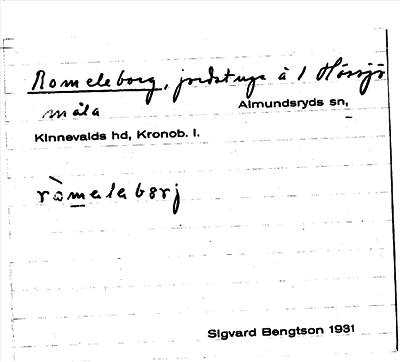 Romeleborg, jordstuga å 1 Hössjö
måla Almundsryds sn,
Kinnevalds hd, Kronob. l.
ròmelebɜrj
Sigvard Bengtson 1931